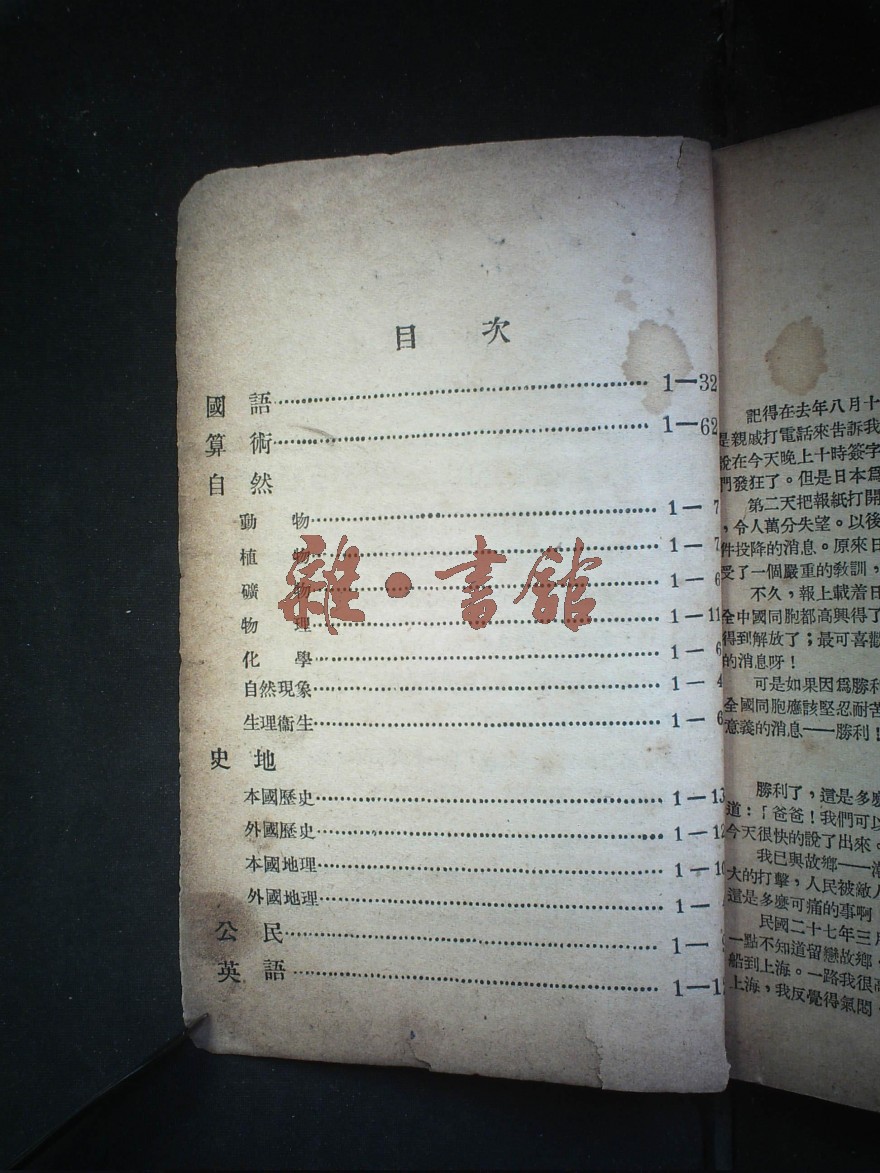 目次
國語 1—32
算術 1—62
自然
動物 1—7
植物 1—7
礦物 1—6
物理 1—11
化學 1—6
自然現象 1—4
生理衞生 1—6
史地
本國歷史 1—13
外國歷史 1—12
本國地理 1—10
外國地理 1—
公民 1—
英語 1—12
雜·書館
記得在去年八月十
是親戚打電話來告訴我
說在今天晚上十時簽字
們發狂了。但是日本爲
第二天把報紙打開
，令人萬分失望。以後
件投降的消息。原來日
受了一個嚴重的教訓，
不久，報上載着日
全中國同胞都高興得了
得到解放了；最可喜歡
的消息呀！
可是如果因爲勝利
全國同胞應該堅忍耐苦
意義的消息——勝利！
勝利了，這是多麽
道：「爸爸！我們可以
今天很快的說了出來。
我已與故鄉——
大的打擊，人民被敵人
這是多麽可痛的事啊
民國二十七年三月
一點不知道留戀故鄉，
船到上海。一路我很高
上海，我反覺得氣悶。